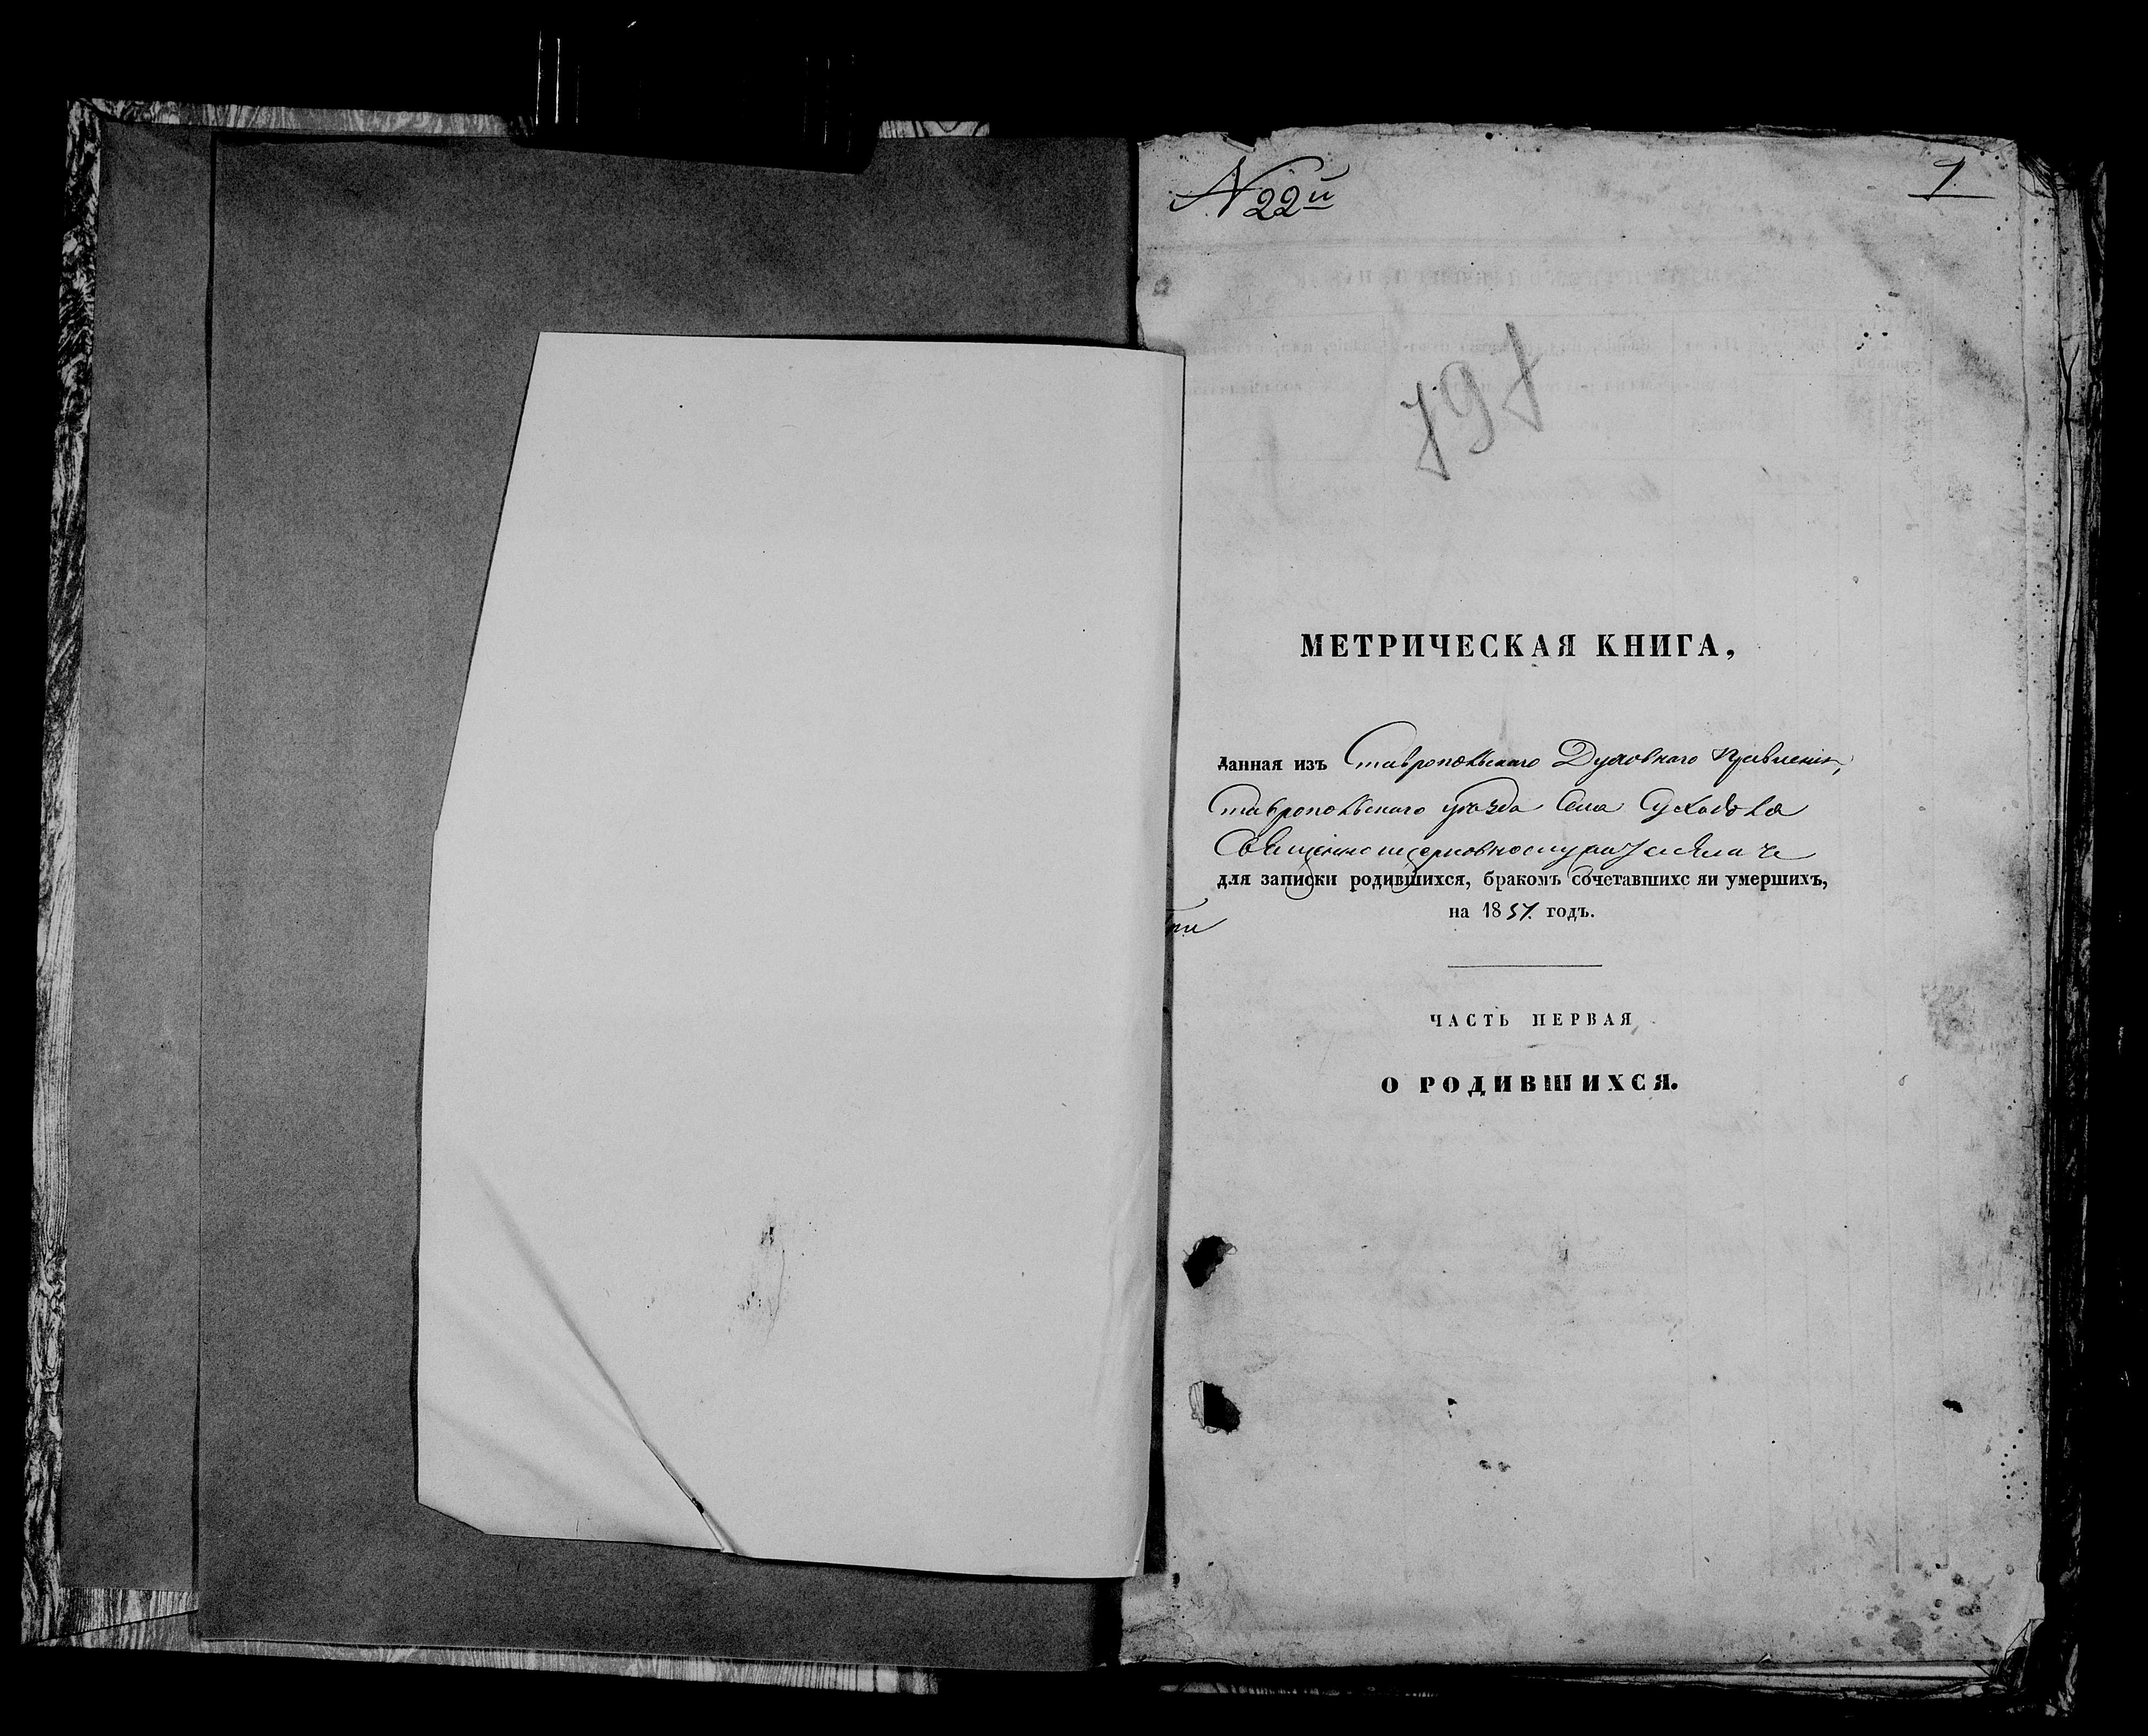 № 22й
1
797
МЕТРИЧЕСКАЯ КНИГА,
данная изъ Ставропольскаго Духовнаго Правленія,
Ставропольскаго уѣзда Села Суходола
Священно и церковнослужителямъ
для записки родившихся, бракомъ сочетавшихс яи умершихъ,
на 1857. годъ.
ЧАСТЬ ПЕРВАЯ
О РОДИВШИХСЯ.